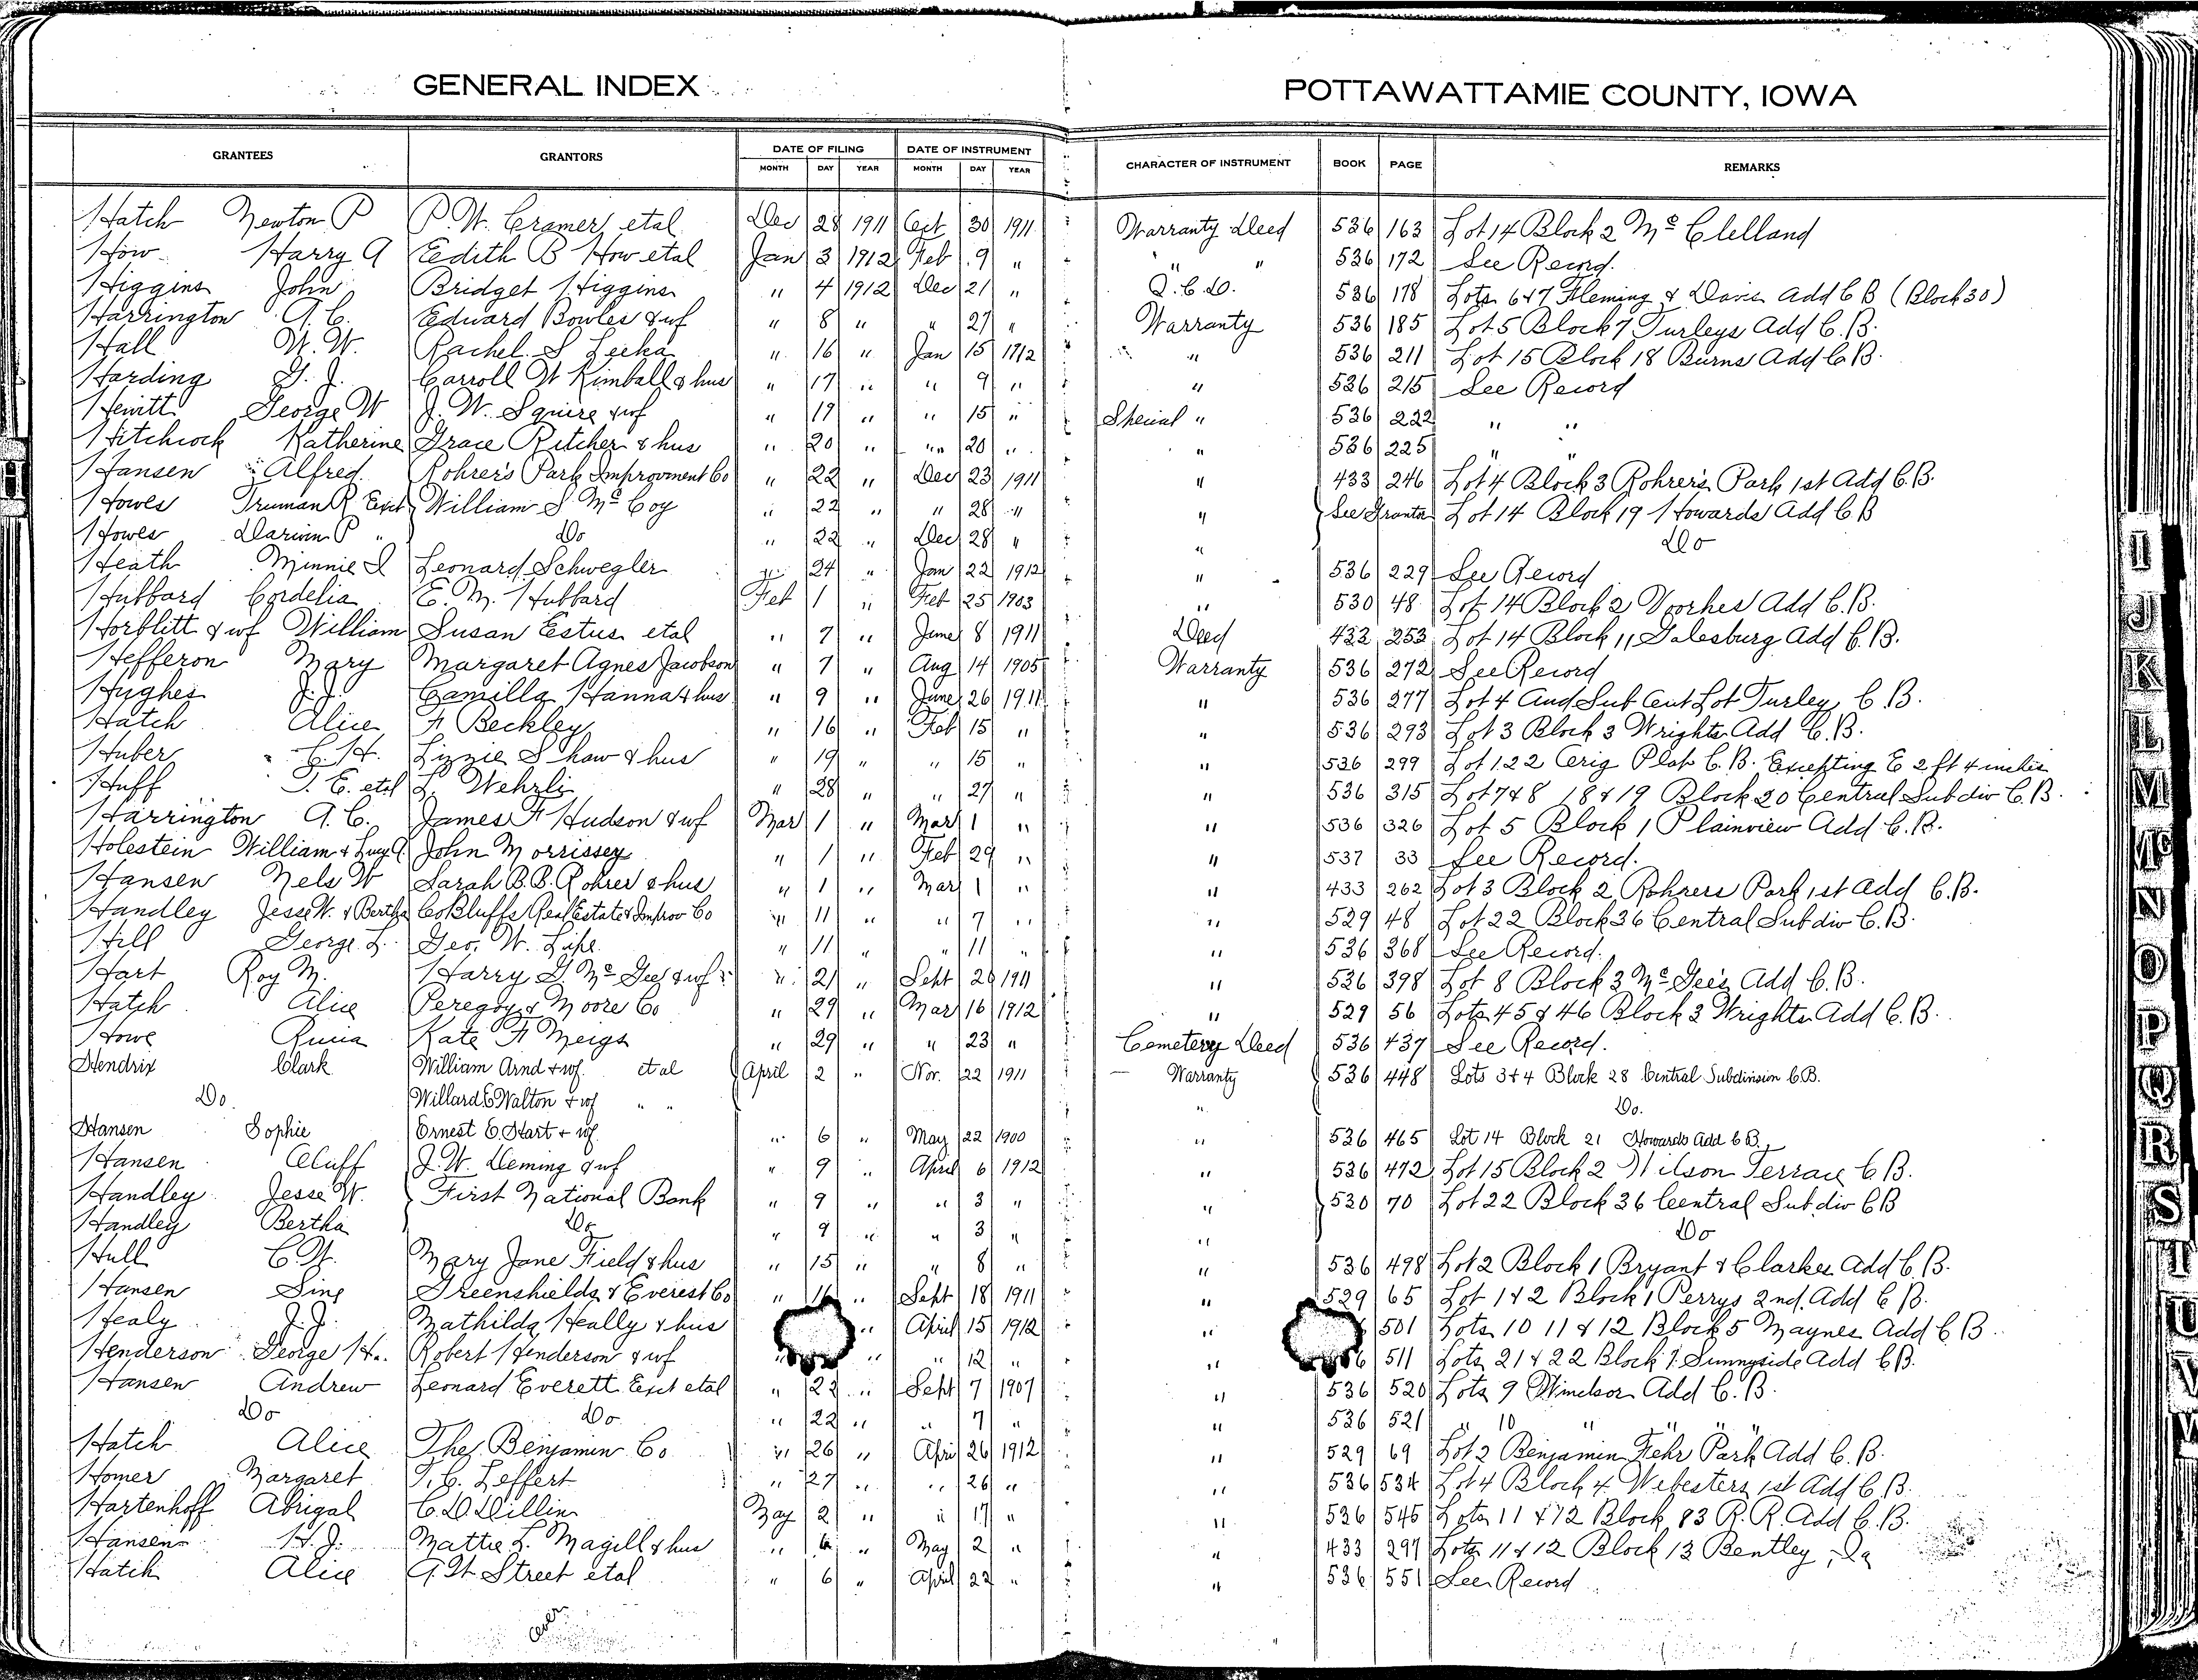 GENERAL INDEX POTTAWATTAMIE COUNTY, IOWA
GRANTEES GRANTORS DATE OF FILING DATE OF INSTRUMENT CHARACTER OF INSTRUMENT BOOK PAGE REMARKS
MONTH DAY YEAR MONTH DAY YEAR
Hatch Newton P P. W. Cramer, etal Dec 28 1911 Oct 30 1911 Warranty Deed 536 163 Lot 14 Block 2 Mc Clelland
How Harry A Edith B How etal Jan 3 1912 Feb 9 " " " 536 172 See Record.
Higgins John Bridget Higgins " 4 1912 Dec 21 " Q. C. D. 536 178 Lots 6 & 7 Fleming & Davis Add C B (Block 30)
Harrington A. C. Edward Bowles & wf " 8 " " 27 " Warranty 536 185 Lot 5 Block 7 Turleys Add C. B.
Hall W. W. Rachel S Leeka " 16 " Jan 15 1912 " 536 211 Lot 15 Block 18 Burns Add C B.
Harding G. J. Carroll W Kimball & hus " 17 " " 9 " " 536 215 See Record
Hewitt George W J. W. Squire & wf " 19 " " 15 " Special " 536 222 " "
Hitchcock Katherine Grace Ritcher & hus " 20 " " 20 " " 536 225 " "
Hansen Alfred Rohrer's Park Improvment Co " 22 " Dec 23 1911 " 433 246 Lot 4 Block 3 Rohrer's Park 1st Add C. B.
Howes Truman R Exct William S Mc Coy " 22 " " 28 " " See Grantor Lot 14 Block 19 Howards Add C B
Howes Darwin P " Do " 22 " Dec 28 " " Do
Heath Minnie I Leonard Schwegler " 24 " Jan 22 1912 " 536 229 See Record
Hubbard Cordelia E. M. Hubbard Feb 1 " Feb 25 1903 " 530 48 Lot 14 Block 2 Voorhes Add C. B.
Horblitt & wf William Susan Estus etal " 7 " June 8 1911 Deed 432 253 Lot 14 Block 11 Galesburg Add C. B.
Hefferon Mary Margaret Agnes Jacobson " 7 " Aug 14 1905 Warranty 536 272 See Record
Hughes J. J. Camilla Hanna & hus " 9 " June 26 1911 " 536 277 Lot 4 Aud Sub Lot Turley C. B.
Hatch Alice F Beckley " 16 " Feb 15 " " 536 293 Lot 3 Block 3 Wrights Add C. B.
Huber C. H. Lizzie Shaw & hus " 19 " " 15 " " 536 299 Lot 122 Orig Plat C. B. Excepting E 2 ft 4 inches
Huff T. E. etal L. Wehrli " 28 " " 27 " " 536 315 Lot 7 & 8 18 & 19 Block 20 Central Subdiv C. B.
Harrington A. C. James F Hudson & wf Mar 1 " Mar 1 " " 536 326 Lot 5 Block 1 Plainview Add C. B.
Holestein William & Lucy A. John Morrissey " 1 " Feb 29 " " 537 33 See Record.
Hansen Nels W Sarah B. B. Rohrer & hus " 1 " Mar 1 " " 433 262 Lot 3 Block 2 Rohrers Park 1st Add C. B.
Handley Jesse W. & Bertha Co Bluffs Real Estate & Improv Co " 11 " " 7 " " 529 48 Lot 22 Block 36 Central Subdiv C. B.
Hill George L. Geo. W. Lipe " 11 " " 11 " " 536 368 See Record.
Hart Roy M. Harry G. Mc Gee & wf " 21 " Sept 20 1911 " 536 398 Lot 8 Block 3 Mc Gee's Add C. B.
Hatch Alice Peregoy & Moore Co " 29 " Mar 16 1912 " 529 56 Lots 45 & 46 Block 3 Wrights Add C. B.
Howe Kate F Meigs " 29 " " 23 " Cemetery Deed 536 437 See Record.
Hendrix Clark William Arnd & wf. et al April 2 " Nov. 22 1911 Warranty 536 448 Lots 3 & 4 Block 28 Central Subdivision C. B.
Do. Willard E Walton & wf " " " Do.
Hansen Sophie Ernest E. Hart & wf. " 6 " May 22 1900 " 536 465 Lot 14 Block 21 Howards Add C B.
Hansen Oluff J. W. Deming & wf " 9 " April 6 1912 " 536 472 Lot 15 Block 2 Wilson Terrace C. B.
Handley Jesse W. First National Bank " 9 " " 3 " " 530 70 Lot 22 Block 36 Central Subdiv C B
Handley Bertha Do " 9 " " 3 " " Do
Hull C. W. Mary Jane Field & hus " 15 " " 8 " " 536 498 Lot 2 Block 1 Bryant & Clarkes Add C. B.
Hansen Sine Greenshields & Everest Co " 16 " Sept 18 1911 " 529 65 Lot 1 & 2 Block 1 Perrys 2nd. Add C B.
Healy J. J. Mathilda Heally & hus " April 15 1912 " 501 Lots 10 11 & 12 Block 5 Maynes Add C B
Henderson George H. Robert Henderson & wf " " " 12 " " 511 Lots 21 & 22 Block 7 Sunnyside Add C B.
Hansen Andrew Leonard Everett Exct etal " 22 " Sept 7 1907 " 536 520 Lots 9 Windsor Add C. B.
Do Do " 22 " " 7 " " 536 521 " 10 " " " "
Hatch Alice The Benjamin Co " 26 " Apri 26 1912 " 529 69 Lot 2 Benjamin Fehr Park Add C. B.
Homer Margaret T. C. Leffert " 27 " " 26 " " 536 534 Lot 4 Block 4 Webesters 1st Add C. B.
Hartenhoff Abrigal C. D. Dillin May 2 " " 17 " " 536 545 Lots 11 & 12 Block 83 R. R. Add C. B.
Hansen H. J. Mattie L. Magill & hus " 6 " May 2 " " 433 297 Lots 11 & 12 Block 13 Bentley, Ia
Hatch Alice A. W. Street etal " 6 " April 22 " " 536 551 See Record
over
H
I
J
K
L
M
Mc
N
O
P
Q
R
S
T
U
V
W